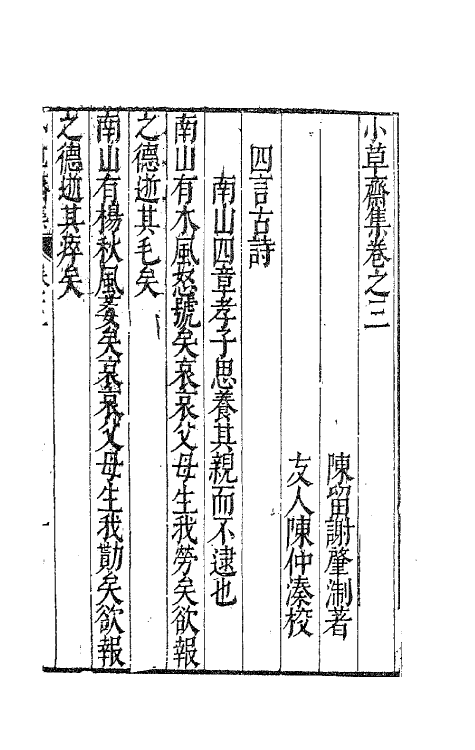 小草齋集卷之三
陳留謝肇淛著
友人陳仲溱校
四言古詩
南山四章孝子思養其親而不逮也
南山有木風怒號矣哀哀父母生我勞矣欲報
之德逝其毛矣
南山有楊秋風萎矣哀哀父母生我勩矣欲報
之德逝其瘁矣